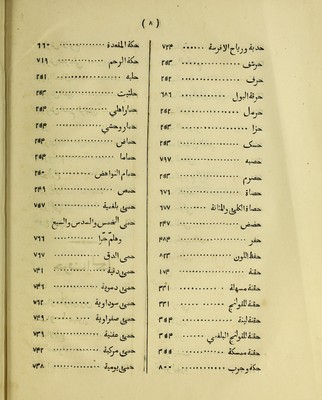 ( ٨ )
حدبة ورياح الافرسة ٧٢٣
حرشف ٢٥٣
حرف ٢٥٢
حرقة البول ٦٨٦
حرمل ٢٥٢
حزا ٢٥٣
حسك ٢٥٣
حصبه ٧٩٧
حصرم ٢٥٣
حصاة ٦٧٦
حصاة الكلى والمثانة ٦٧٧
حضض ٢٤٧
حفر ٤٨٤
حفظ اللون ٨٢٣
حقنة ١٧٤
حقنة مسهلة ٣٣١
حقنة للقولنج ٣٣١
حقنة لينة ٣٥٤
حقنة للقولنج البلغمي ٣٥٤
حقنة ممسكة ٣٥٥
حكة وجرب ٨٠٠
حكة المقعدة ٦٦٠
حكة الرحم ٧١٩
حلبه ٢٥١
حلتيت ٢٥٣
حمار اهلي ٢٥٤
حمار وحشي ٢٥٤
حماض ٢٥٤
حماما ٢٥٤
حمام النواهض ٢٥٠
حمص ٢٤٩
حمى بلغمية ٧٥٧
حمى الخمس والسدس والسبع
وهلم جرا ٧٦٦
حمى الدق ٧٦٧
حمى دقية ٧٤١
حمى دموية ٧٤٦
حمى سوداوية ٧٦٢
حمى صفراوية ٧٤٩
حمى عفنية ٧٣٩
حمى مركبة ٧٤٢
حمى يومية ٧٣٨